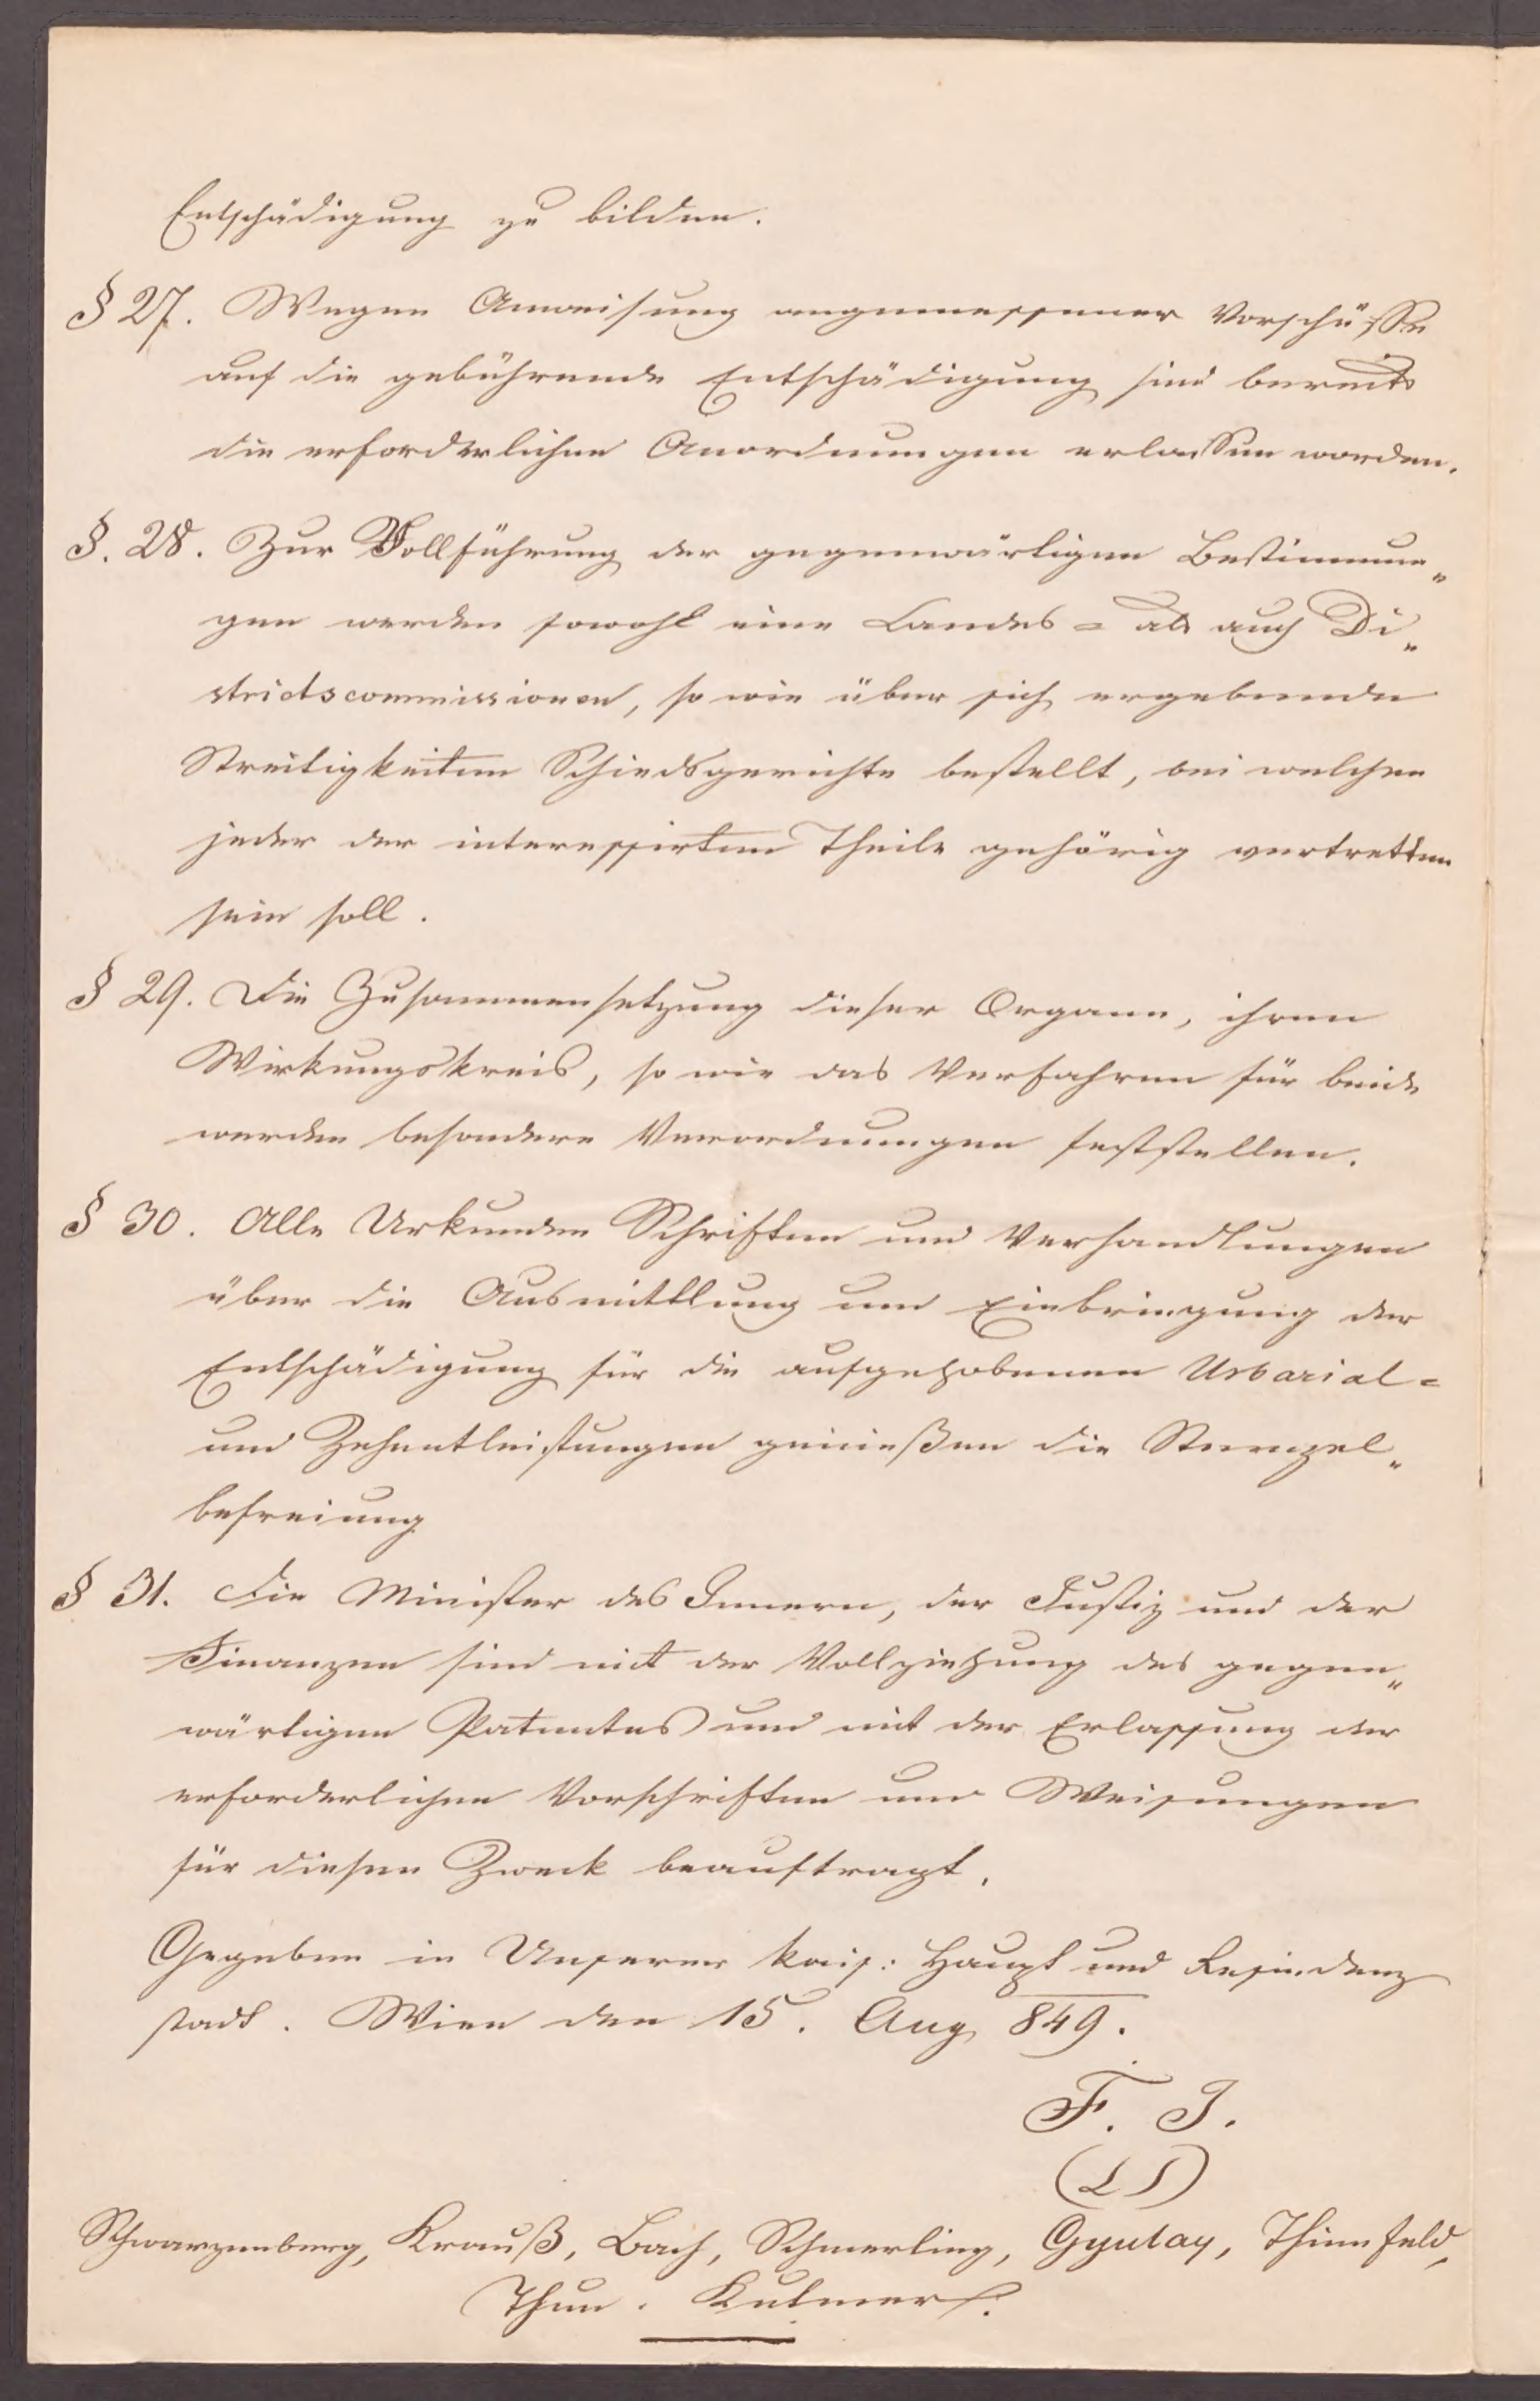 Entschädigung zu bilden.
§ 27. Wegen Anweisung angemessener Vorschüsse
auf die gebührende Entschädigung sind bereits
die erforderlichen Anordnungen erlassen worden.
§. 28. Zur Vollführung der gegenwärtigen Bestimmun„
gen werden sowohl eine Landes= als auch Di„
strictscommissionen, so wie über sich ergebende
Streitigkeiten Schiedsgerichte bestellt, bei welchen
jeder der interessirten Theile gehörig vertretten
sein soll.
§ 29. Die Zusammensetzung dieser Organe, ihren
Wirkungskreis, so wie das Verfahren für beide
werden besondere Verordnungen feststellen.
§ 30. Alle Urkunden Schriften und Verhandlungen
über die Ausmittlung und Einbringung der
Entschädigung für die aufgehobenen Urbarial=
und Zehentleistungen genießen die Stempel„
befreiung
§ 31. Die Minister des Innern, der Justiz und der
Finanzen sind mit der Vollziehung des gegen„
wärtigen Patentes und mit der Erlassung der
erforderlichen Vorschriften und Weisungen
für diesen Zweck beauftragt.
Gegeben in Unserer kais: Haupt und Residenz
stadt. Wien den 15. Aug 849.
F. J.
(LS)
Schwarzenberg, Krauß, Bach, Schmerling, Gyulay, Thinnfeld,
Thun. Kulmer.